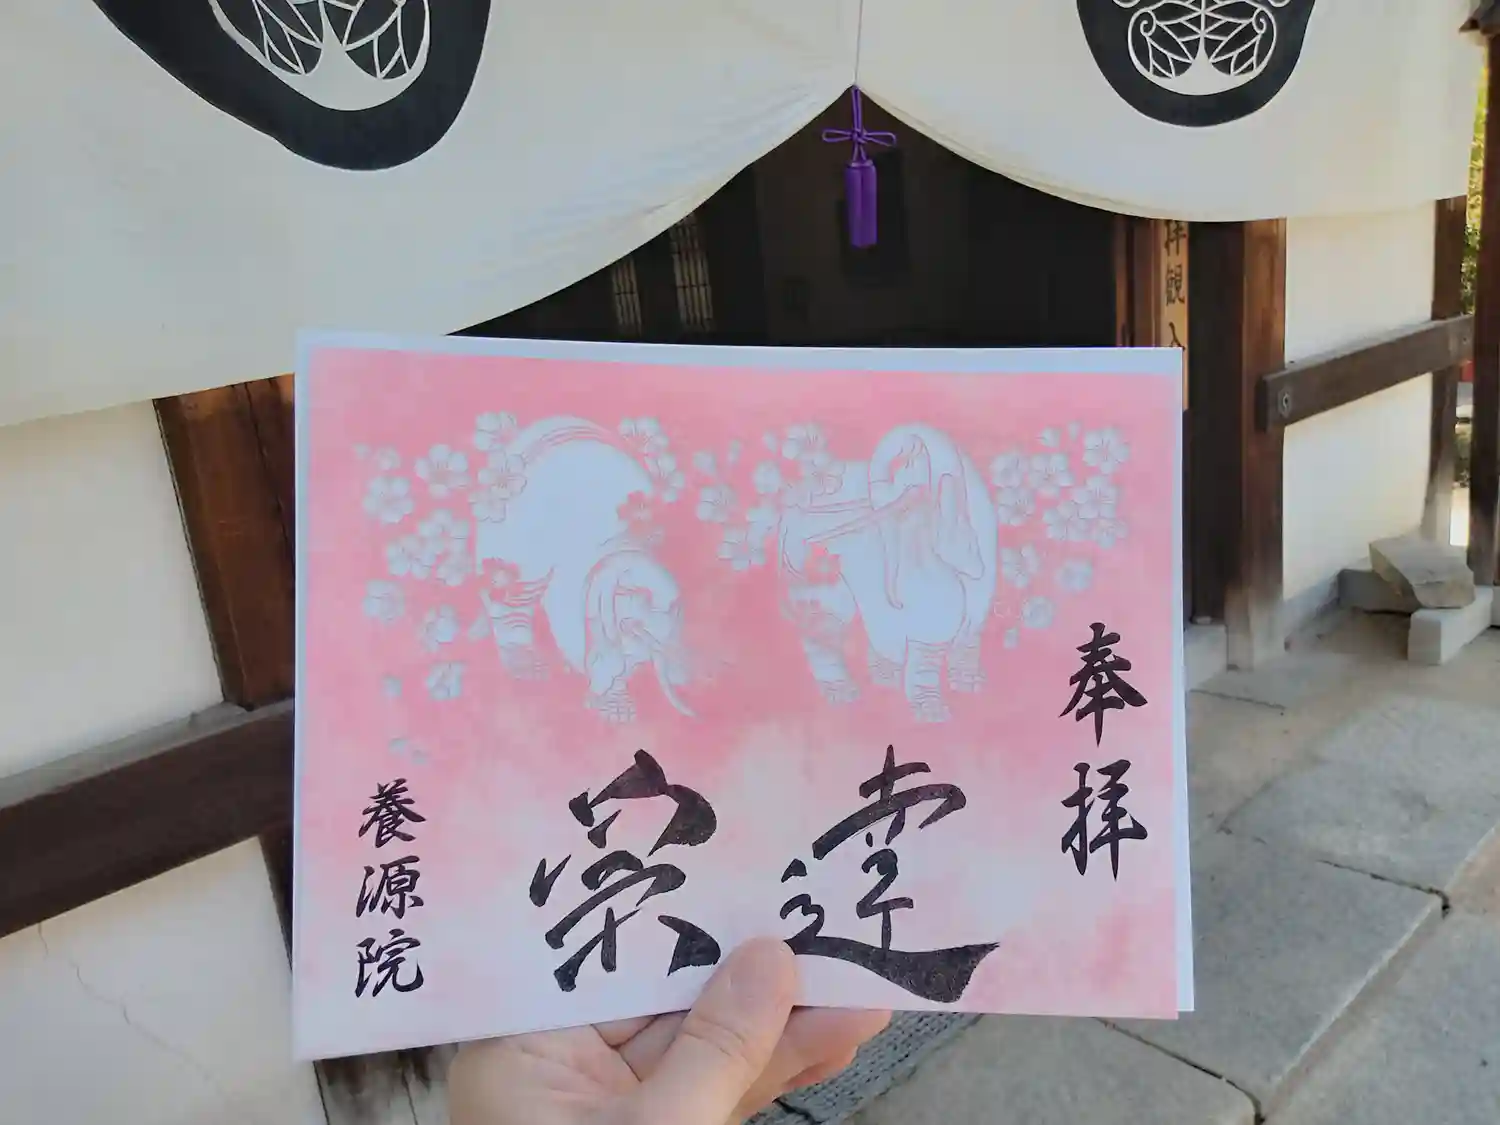 拝観入
奉拝
達
宗
養源院